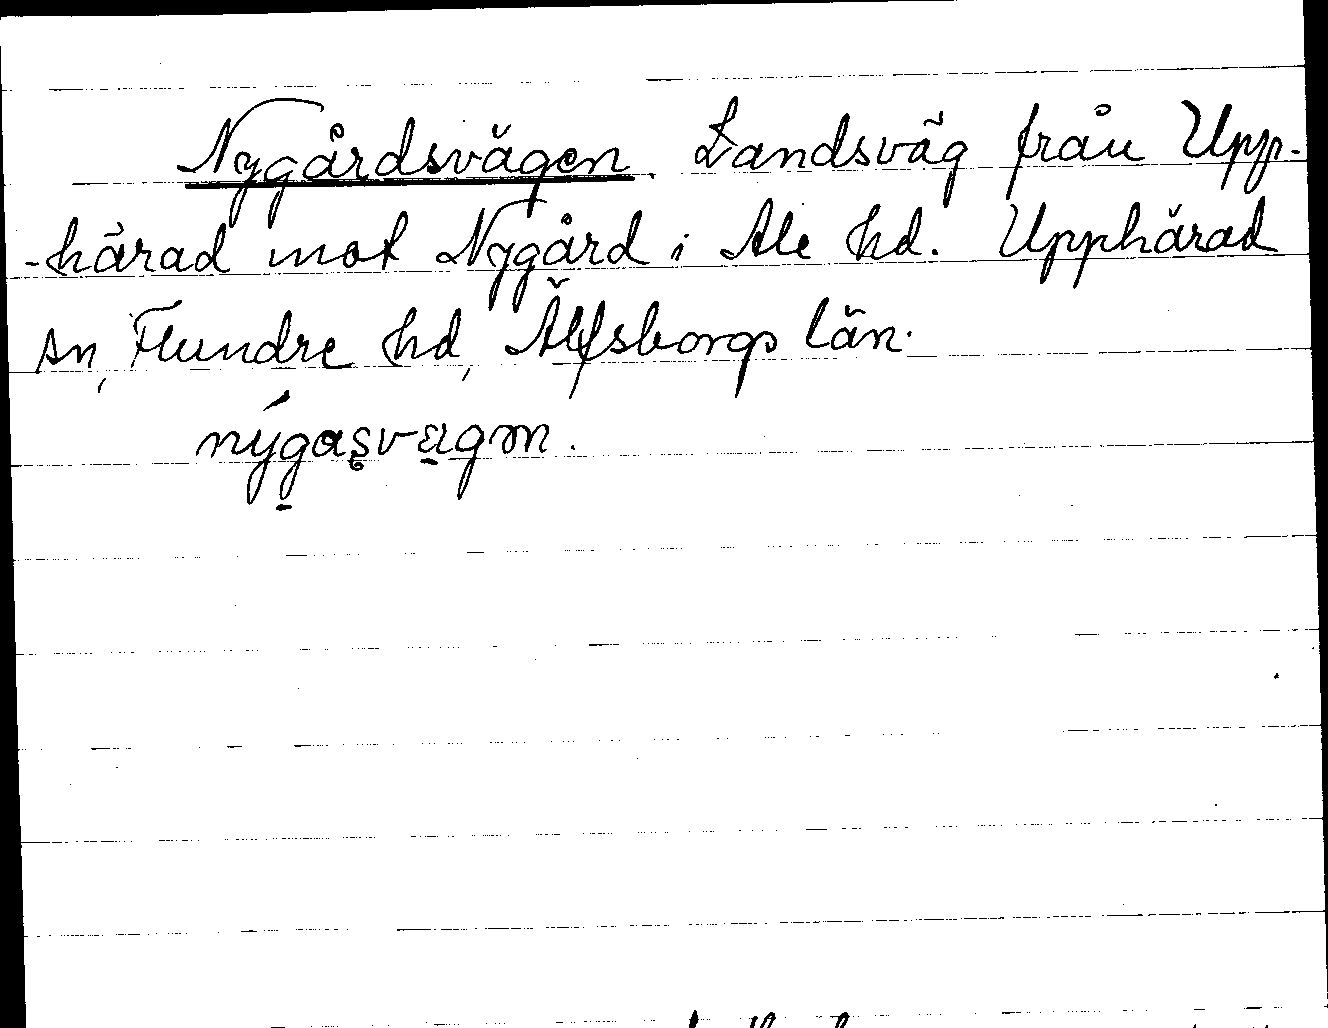 Nygårdsvägen. Landsväg från Upp-
-härad mot Nygård i Ale hd. Upphärad
sn, Flundre hd, Älfsborgs län.